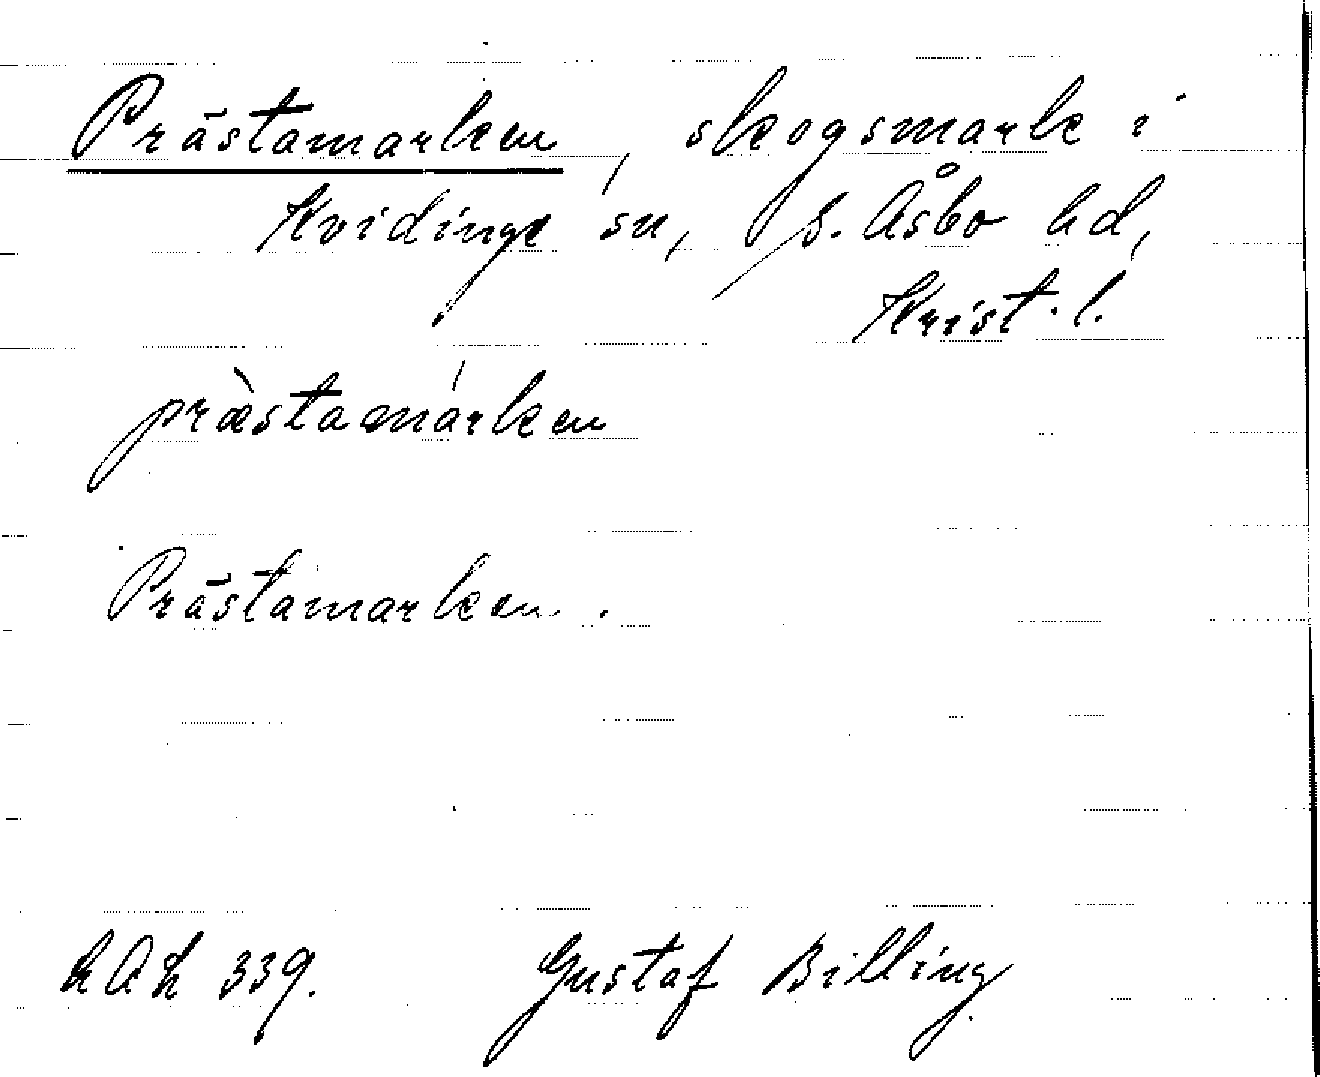 Prästamarken, skogsmark i
Kvidinge sn, S. Åsbo hd,
Krist. l.
præ̀stamárken
Prästamarken.
LAL 339. Gustaf Billing